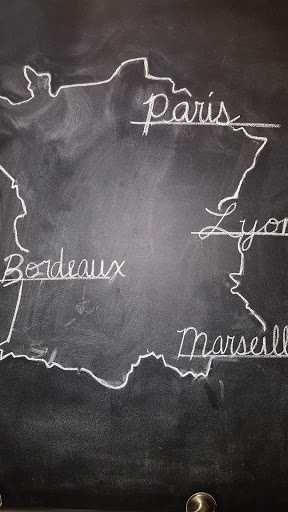 Paris
Lyon
Bordeaux
Marseill